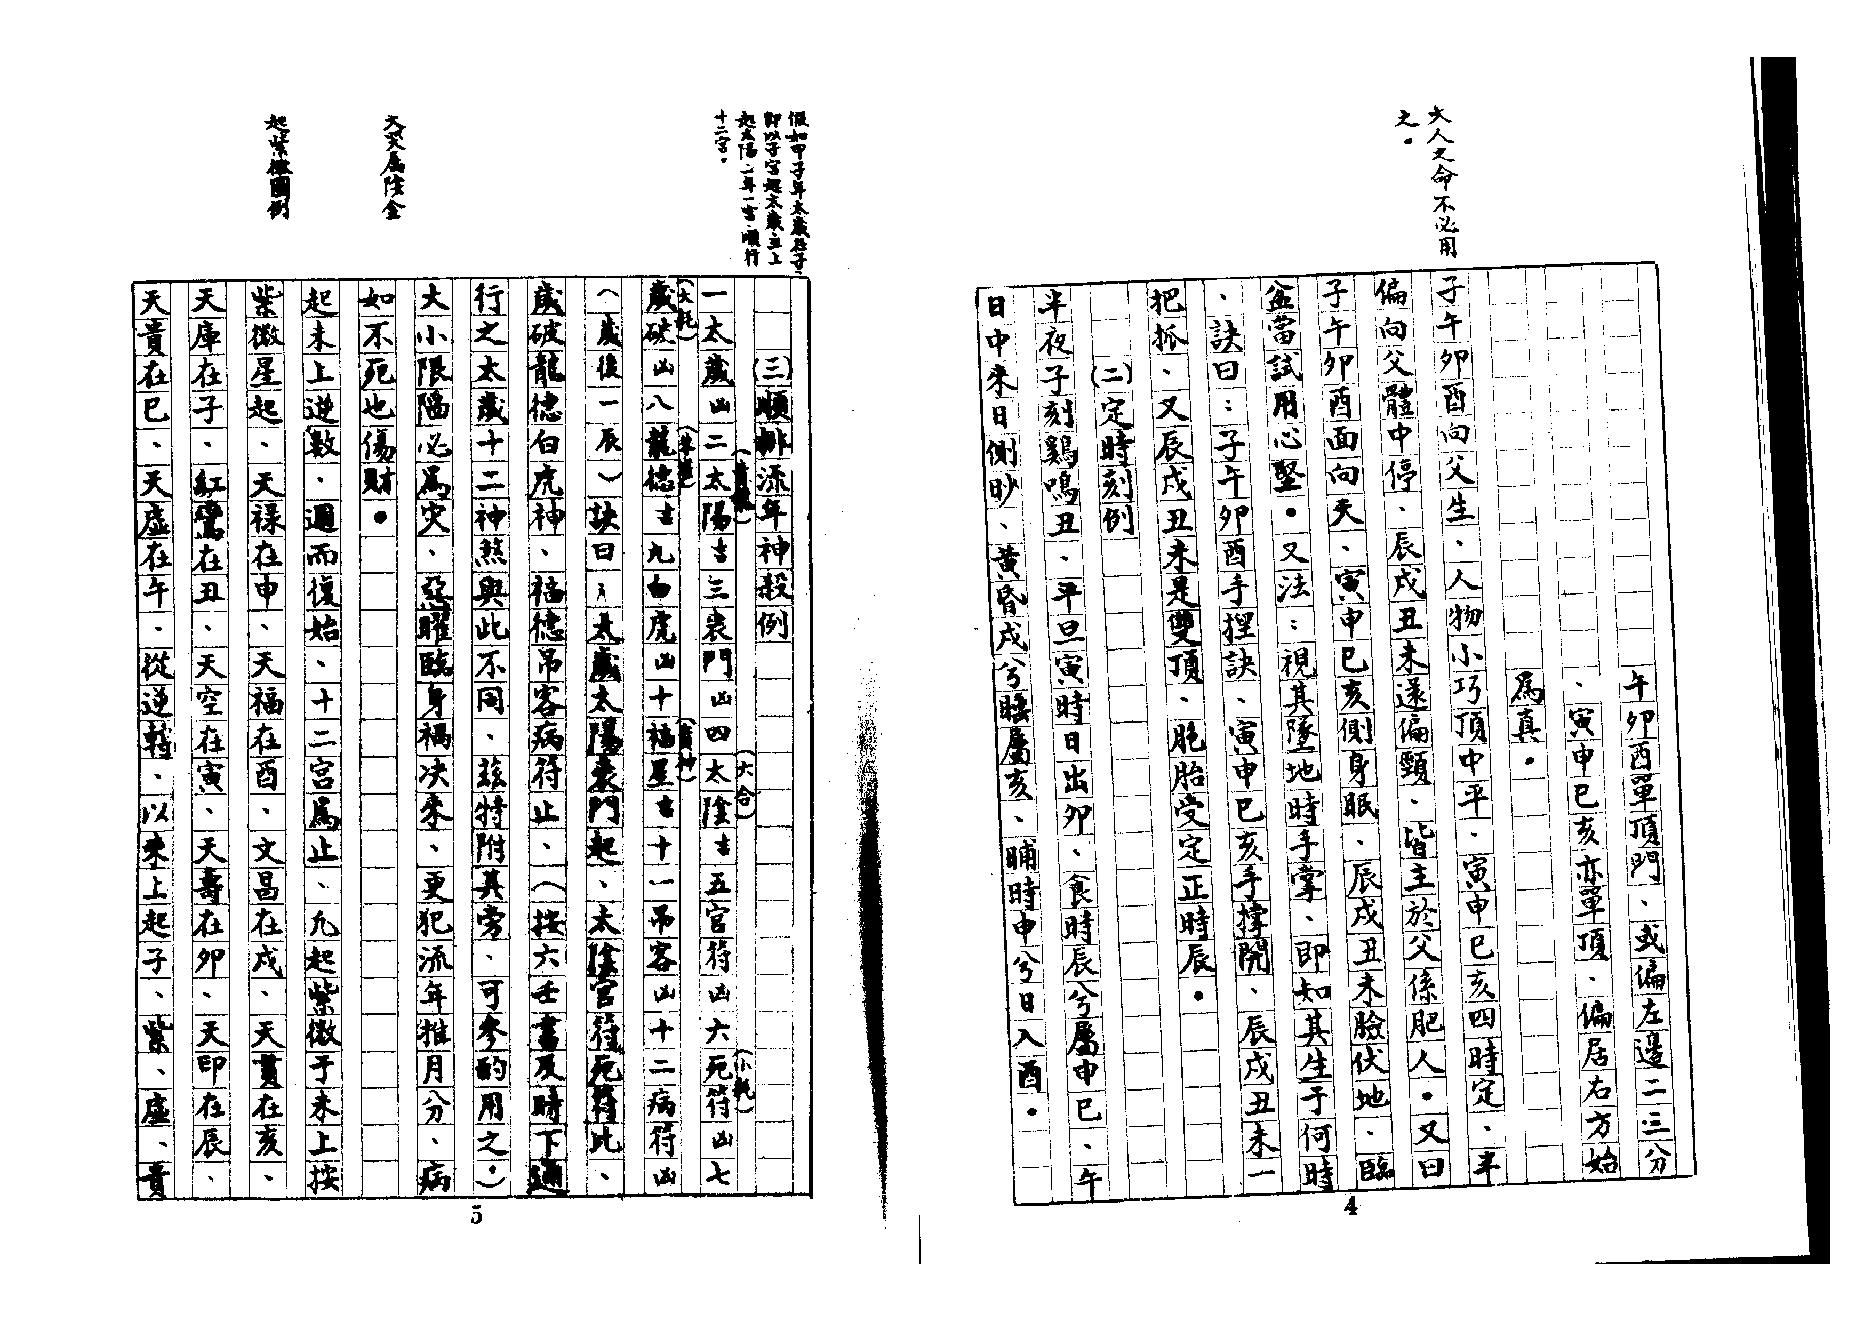 大人之命不必用
之。
午卯酉單頂門、或偏左邊二三分
、寅申巳亥亦單頂、偏居右方始
為真。
子午卯酉向父生、人物小巧頂中平、寅申巳亥四時定、半
偏向父體中停、辰戌丑未遂偏頸、皆主於父係肥人。又曰
子午卯酉面向天、寅申巳亥側身眠、辰戌丑未臉伏地、臨
盆當試用心堅。又法：視其墜地時手掌、即知其生于何時
、訣曰：子午卯酉手捏訣、寅申巳亥手撑開、辰戌丑未一
把抓、又辰戌丑未是雙頂、胞胎受定正時辰。
(二)定時刻例
半夜子刻鷄鳴丑、平旦寅時日出卯、食時辰兮屬申巳、午
日中來日側眇、黃昏戌兮睡屬亥、晡時申兮日入酉。
4
假如甲子年太歲在子、
即以子宮起太歲、丑上
起太陽、一年一宮、順行
十二宮。
大耗屬陰金
起紫微圖例
(三)順排流年神殺例
一太歲凶二太陽吉三喪門凶四太陰吉五官符凶六死符凶七
(六合)
(小耗)
(大耗)
歲破凶八龍德吉九白虎凶十福星吉十一吊客凶十二病符凶
(歲後一辰)訣曰：太歲太陽喪門起、太陰官符死符此、
歲破龍德白虎神、福德吊客病符止、(按六壬書及時下通
行之太歲十二神煞與此不同、茲特附其旁、可參酌用之。)
大小限隔必為灾、惡曜臨身禍决來、更犯流年推月分、病
如不死也傷財。
起未上逆數、週而復始、十二宮為止、凡起紫微于未上按
紫微星起、天祿在申、天福在酉、文昌在戌、天貫在亥、
天庫在子、紅鸞在丑、天空在寅、天壽在卯、天印在辰、
天貴在巳、天虛在午、從逆轉、以來上起子、紫、虛、貴
5